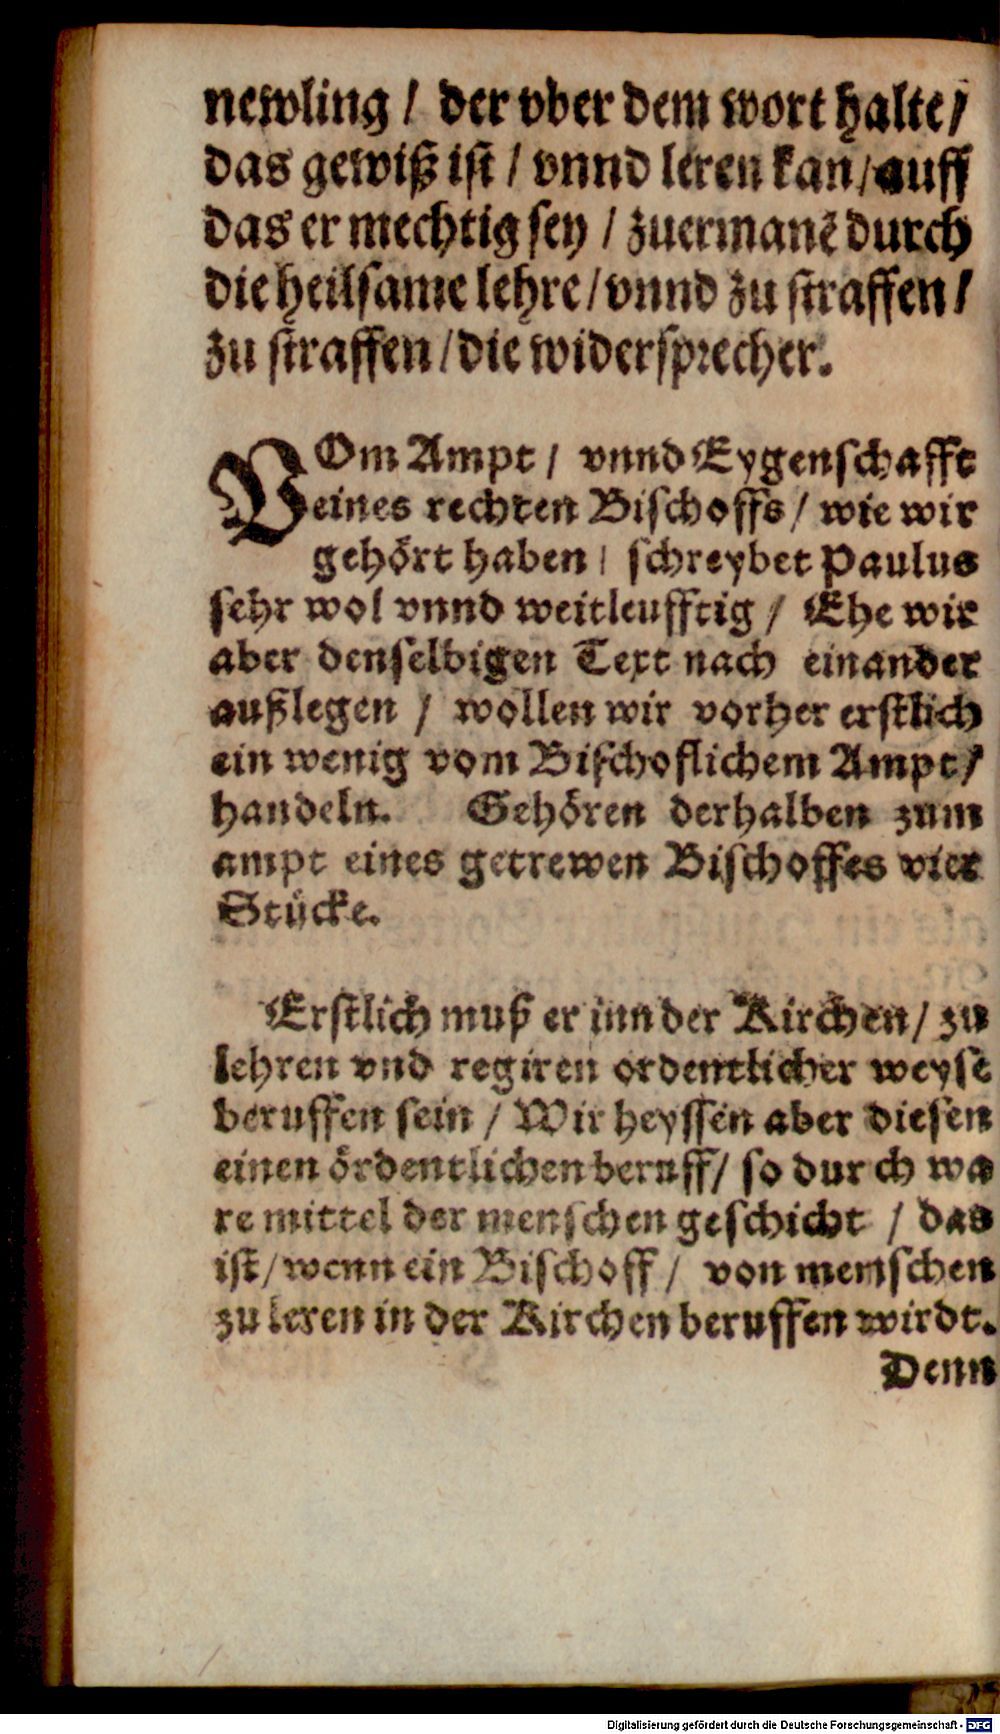 newling / der vber dem wort halte /
das gewiß ist / vnnd leren kan / auff
das er mechtig sey / zuermanẽ durch
die heilsame lehre / vnnd zu straffen /
zu straffen / die widersprecher.
VOm Ampt / vnnd Eygenschafft
eines rechten Bischoffs / wie wir
gehört haben / schreybet Paulus
sehr wol vnnd weitleufftig / Ehe wir
aber denselbigen Text nach einander
außlegen / wollen wir vorher erstlich
ein wenig vom Bischoflichem Ampt /
handeln. Gehören derhalben zum
ampt eines getrewen Bischoffes vier
Stücke.
Erstlich muß er inn der Kirchen / zu
lehren vnd regiren ordentlicher weyse
beruffen sein / Wir heyssen aber diesen
einen ördentlichen beruff / so dur ch wa
re mittel der menschen geschicht / das
ist / wenn ein Bischoff / von menschen
zu leren in der Kirchen beruffen wirdt.
Denn
Digitalisierung gefördert durch die Deutsche Forschungsgemeinschaft - DFG